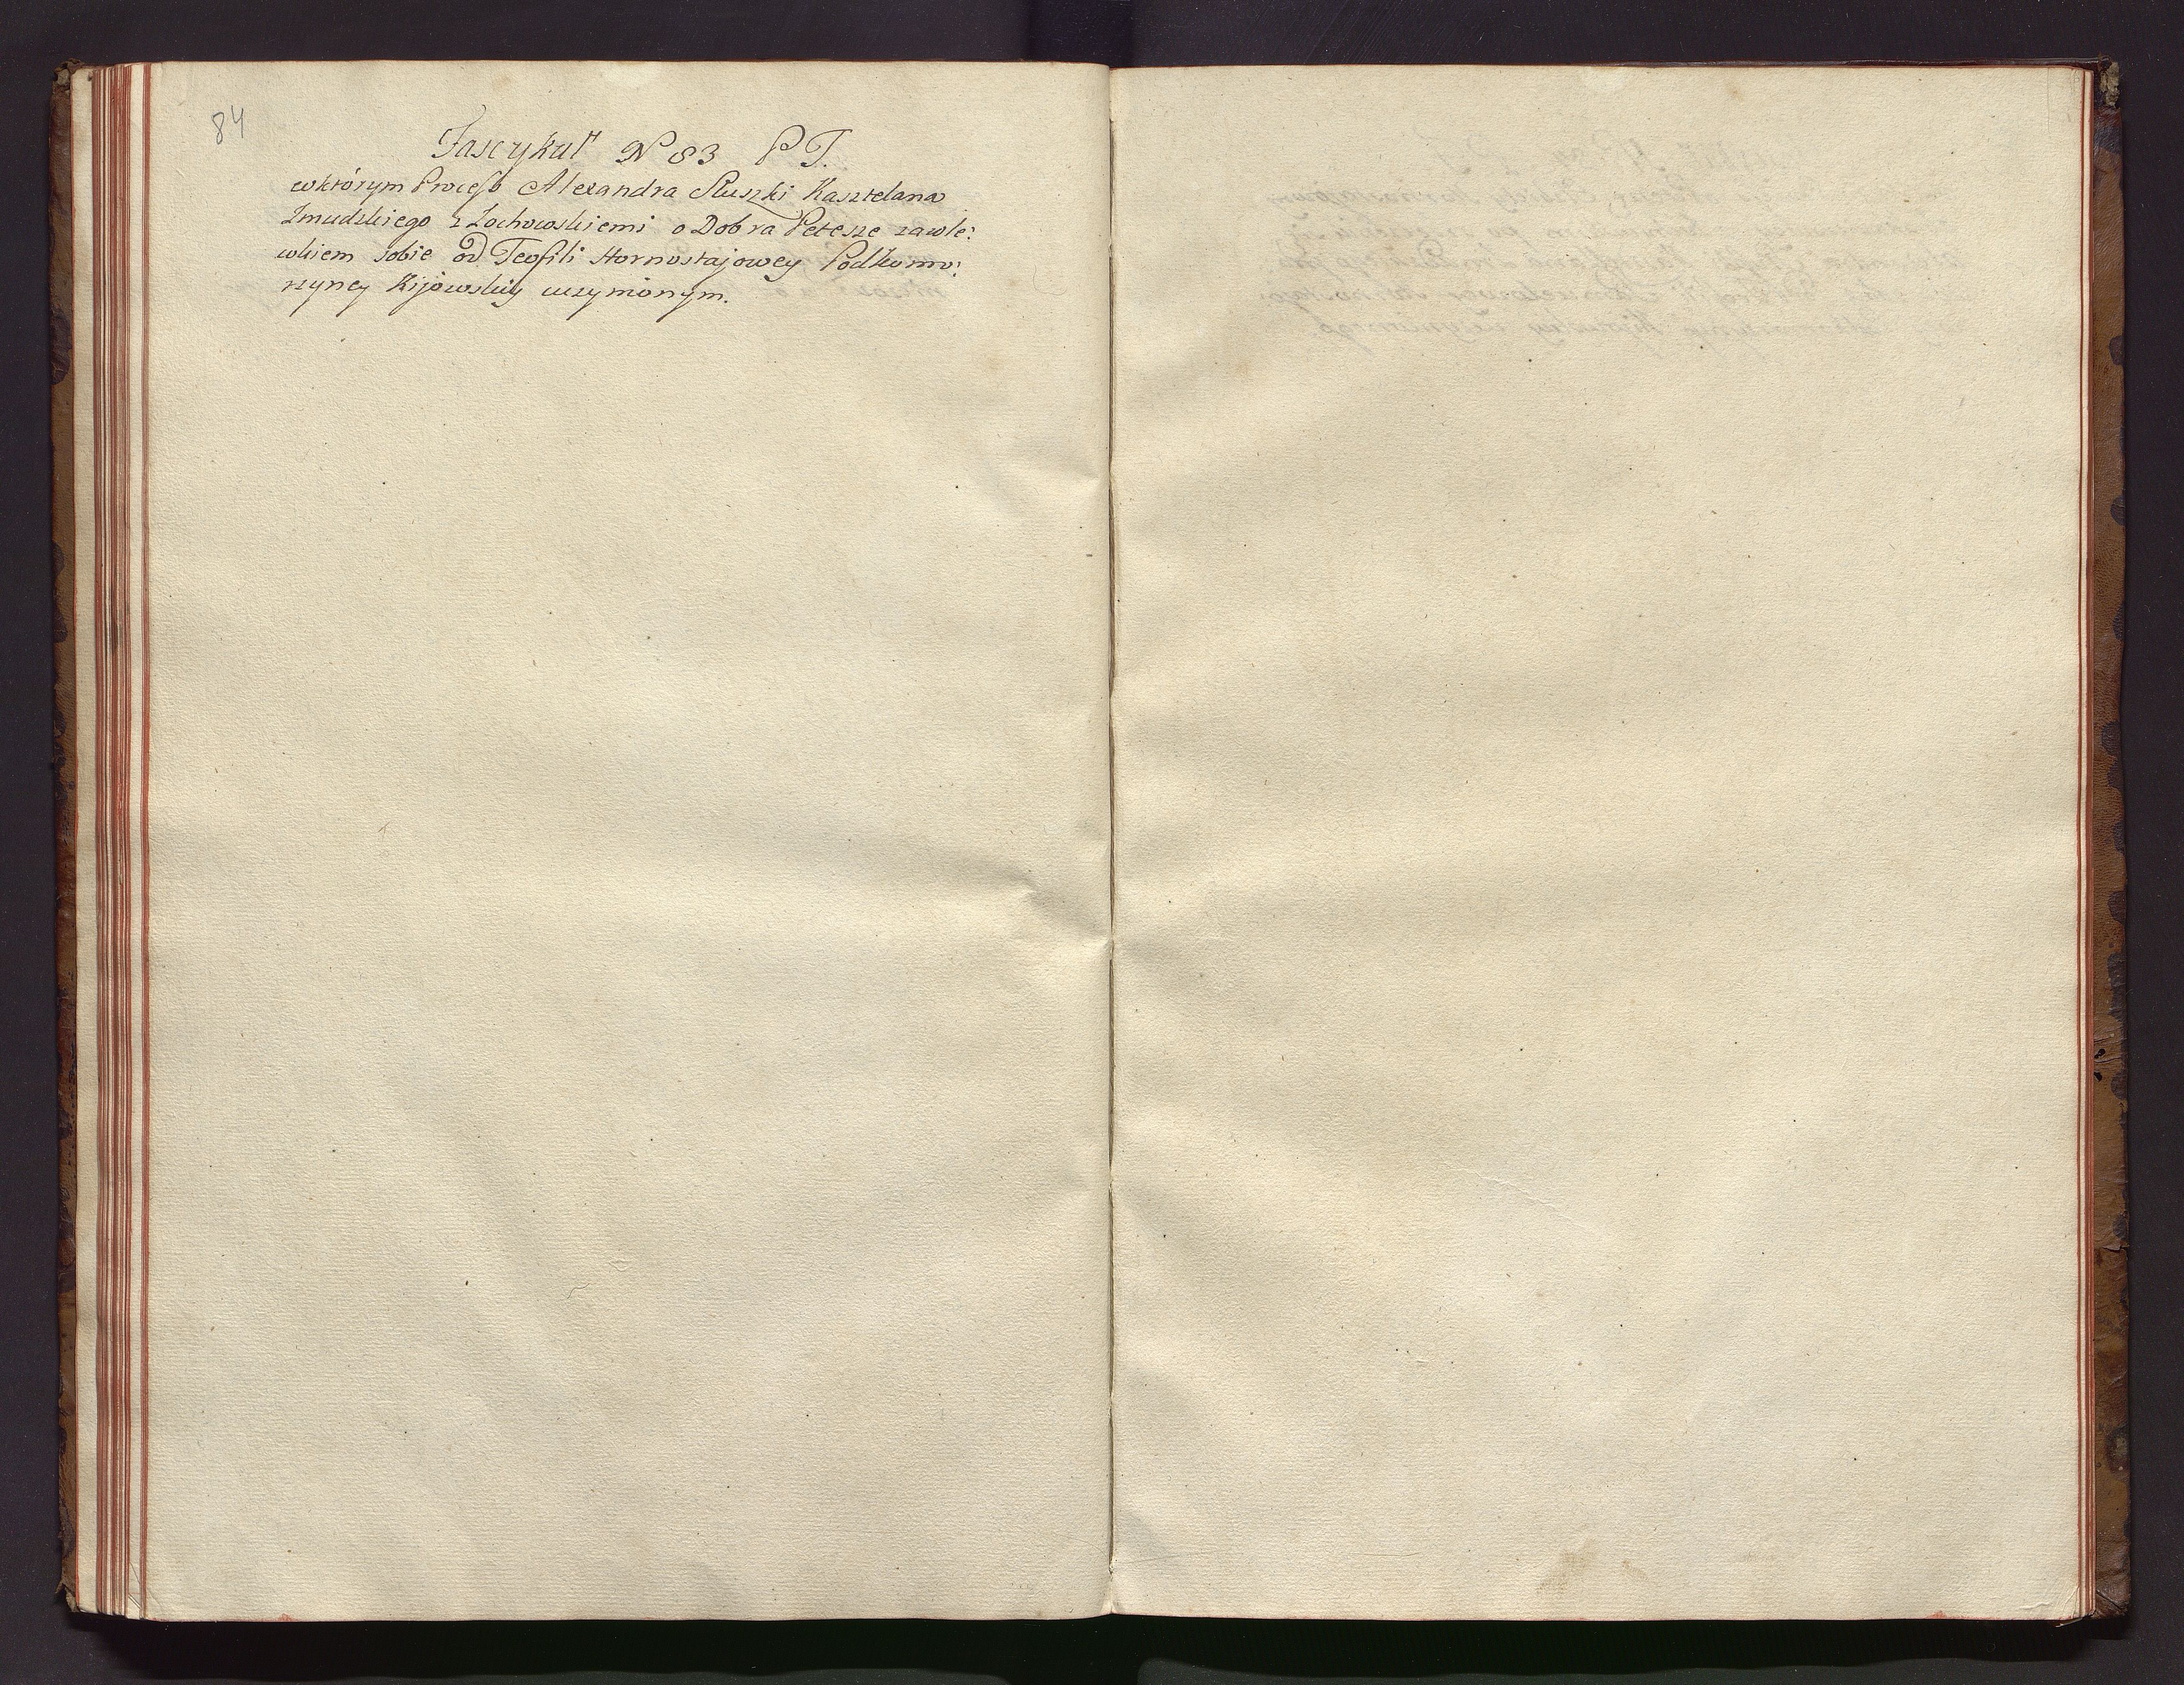 84
Fascykuł N 83 PT.
wktórym Process Alexandra Słuszki Kasztelana
Zmudzkiego z Lochowskiemi o Dobra Petesze zawle:
wkiem sobie od Teofili Hornostajowey Podkomo:
rzyney Kijowskiey uczynionym.